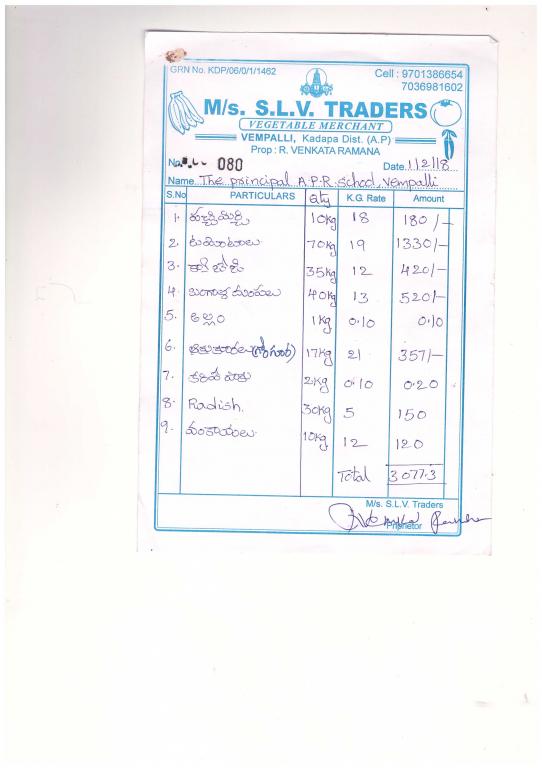 GRN No. KDP/06/0/1/1462
Cell : 9701386654
7036981602
M/s. S.L.V. TRADERS
VEGETABLE MERCHANT
VEMPALLI, Kadapa Dist. (A.P)
Prop : R. VENKATA RAMANA
No. 080 Date. 1/2/18
Name. The principal A.P.R. school, Vempalli
S.No PARTICULARS Qty K.G. Rate Amount
1. పచ్చిమిర్చి 10kg 18 180/-
2. టమోటాలు 70kg 19 1330/-
3. 35kg 12 420/-
4. బంగాళ దుంపలు 40kg 13 520/-
5. అల్లం 1kg 0.10 0.10
6. ఆకుకూరలు (గోంగూర) 17kg 21 357/-
7. కరివేపాకు 2kg 0.10 0.20
8. Radish. 30kg 5 150
9. వంకాయలు 10kg 12 120
Total 3077.3
M/s. S.L.V. Traders
Proprietor